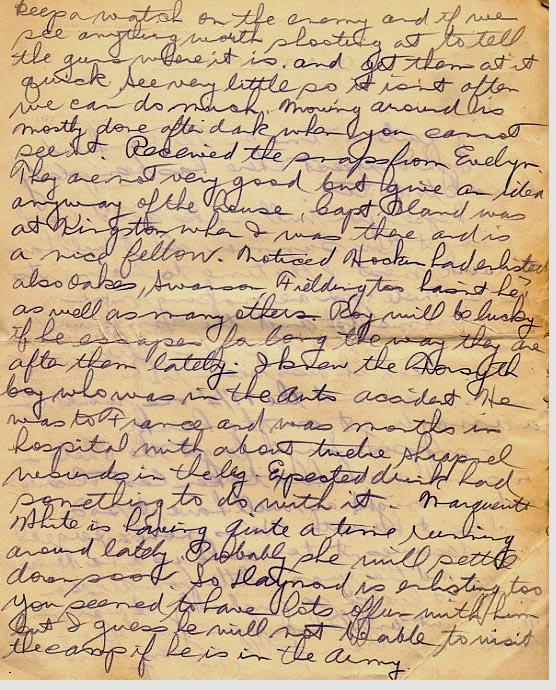 keep a watch on the enemy and if we
see anything worth shooting at to tell
the guns where it is. and get them at it
quick. See very little so it isnt often
we can do much. Moving around is
mostly done after dark when you cannot
see it. Received the snaps from Evelyn.
They are not very good but give an idea
anyway of the house. Capt. Bland was
at Kingston when I was there and is
a nice fellow. Noticed Hocken had enlisted
also Oakes, Swanson Fielding too hasn't he,
as well as many others. Roy will be lucky
if he escapes for long the way they are
after them lately. I knew the Forsyth
boy who was in the auto accident. He
was to France and was months in
hospital with about twelve shrapnel
wounds in the leg. Expected drink had
something to do with it. Marguerite
White is having quite a time running
around lately. Probably she will settle
down soon. So Haymond is enlisting too
You seemed to have lots of fun with him
but I guess he will not be able to visit
the camp if he is in the Army.